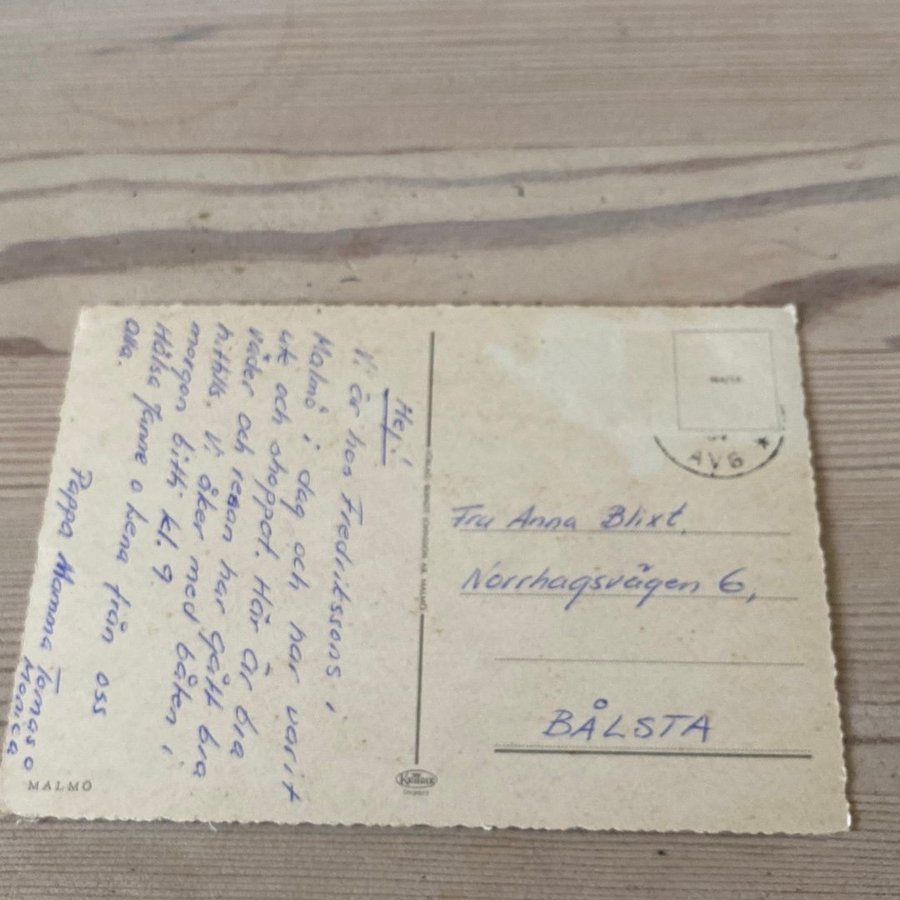 Hej!
Vi är hos Fredrikssons i
Malmö i dag och har varit
ute och shoppat. Här är bra
väder och resan har gått bra
hittills. Vi åker med båten i
morgon bitti kl. 9.
Hälsa Janne o Lena från oss
alla.
Pappa Mamma Tomas o
Monica
MALMÖ
AVG
Fru Anna Blixt
Norrhagsvägen 6,
BÅLSTA